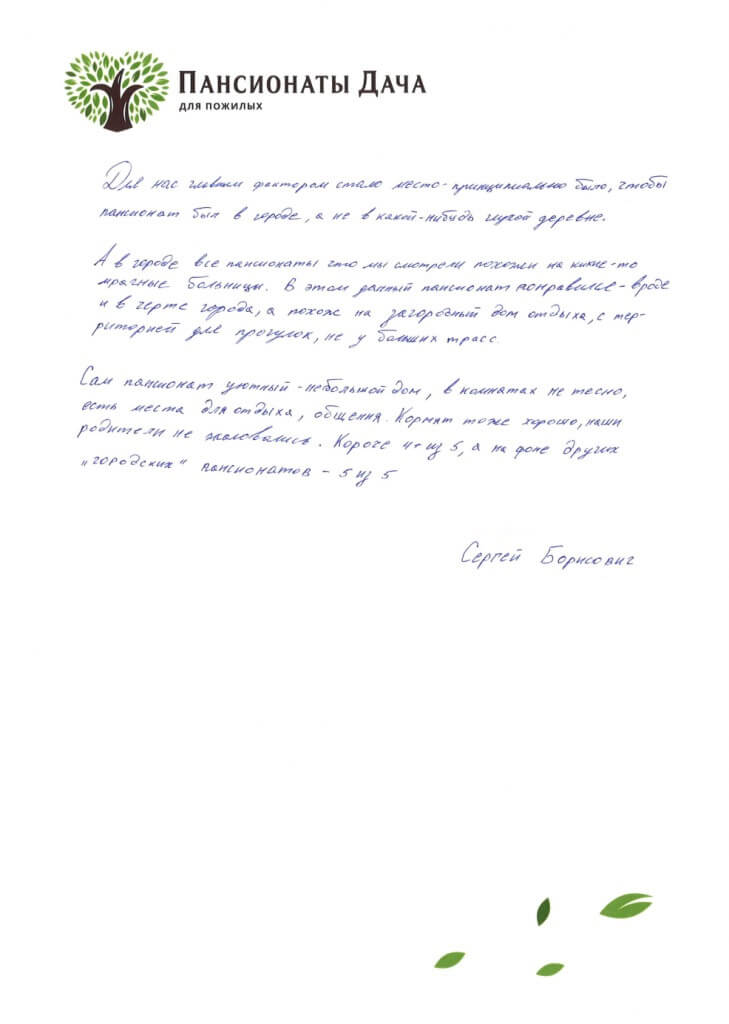 ПАНСИОНАТЫ ДАЧА
ДЛЯ ПОЖИЛЫХ
Для нас главным фактором стало место - принципиально было, чтобы
пансионат был в городе, а не в какой-нибудь глухой деревне.
А в городе все пансионаты что мы смотрели похожи на какие-то
мрачные больницы. В этом данный пансионат понравился - вроде
и в черте города, а похож на загородный дом отдыха, с тер-
риторией для прогулок, не у больших трасс.
Сам пансионат уютный - небольшой дом, в комнатах не тесно,
есть места для отдыха, общения. Кормят тоже хорошо, наши
родители не жаловались. Короче 4+ из 5, а на фоне других
„городских" пансионатов - 5 из 5
Сергей Борисович